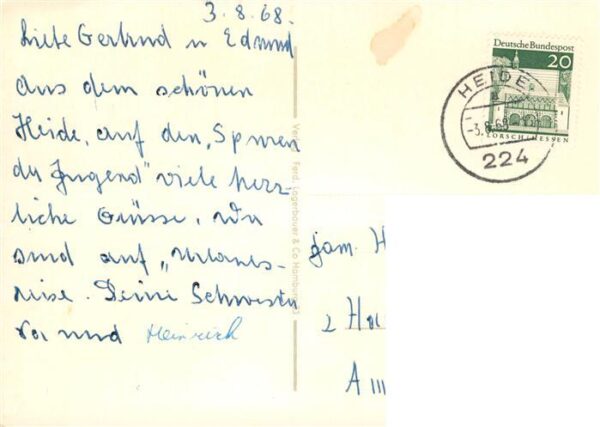 3.8.68.
Liebe Gertrud u Edmund
aus dem schönen
Heide, auf den „Spuren
der Jugend" viele herz-
liche Grüsse. Wir
sind auf „Urlaubs-
reise. Deine Schwester
und Heinrich
Verlag Ferd. Lagerbauer & Co Hamburg
Deutsche Bundespost
20
LORSCH/HESSEN
HEIDE
-3.8.68
224
Fam. H
2 H
A